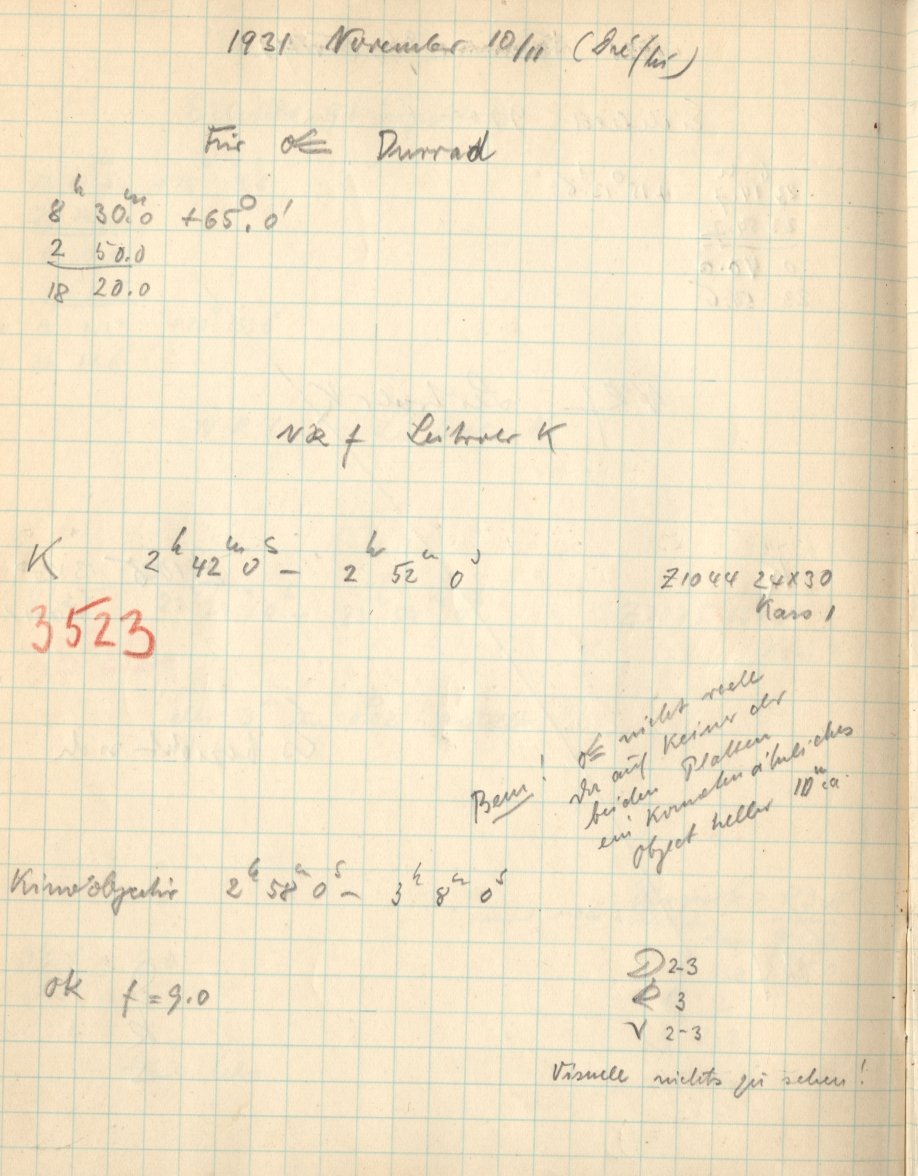 1931 November 10/11 (Dié/hi)
Für ☄ Durrad
8ʰ 30ᵐ.0 +65°.0'
2 50.0
18 20.0
NR f Leitrohr K
K 2ʰ 42ᵐ 0ˢ – 2ʰ 52ᵐ 0ˢ
Z1044 24x30
Kass 1
3523
Bem! ☄ nicht reell
da auf keiner der
beiden Platten
ein kometenähnliches
Object heller 10ᵐ.a
Kinoobjectiv 2ʰ 58ᵐ 0ˢ – 3ʰ 8ᵐ 0ˢ
ok f = 9.0
D 2-3
R 3
V 2-3
Visuell nichts zu sehen!